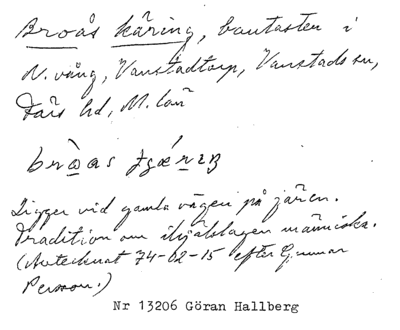 Broås käring, bautasten i
N. vång, Vanstadtorp, Vanstads sn,
Färs hd, M. län
Ligger vid gamla vägen på jären.
Tradition om ihjälslagen människa.
(Antecknat 74-02-15 efter Gunnar
Persson.)
Nr 13206 Göran Hallberg